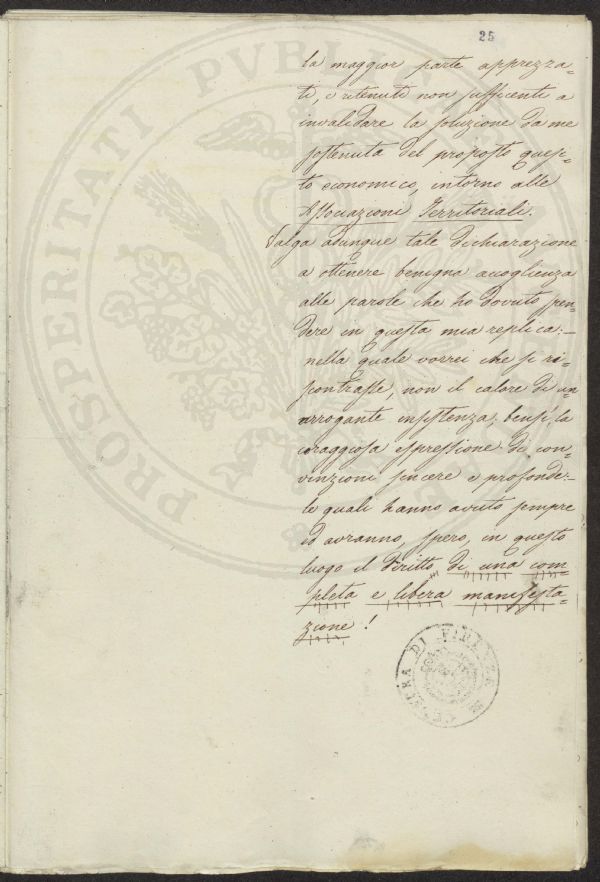 25
la maggior parte apprezza-
ti, e ritenuti non sufficenti a
invalidare la soluzione da me
sostenuta del proposto quesi-
to economico, intorno alle
Associazioni Territoriali.
Valga adunque tale dichiarazione
a ottenere benigna accoglienza
alle parole che ho dovuto spen-
dere in questa mia replica:-
nella quale vorrei che si ri-
scontrasse, non il calore di un
arrogante insistenza; bensì, la
coraggiosa espressione di con-
vinzioni sincere e profonde:-
le quali hanno avuto sempre
ed avranno, spero, in questo
luogo il diritto di una com-
pleta e libera manifesta-
zione!
PROSPERITATI PVBLIC
DI FIRENZE